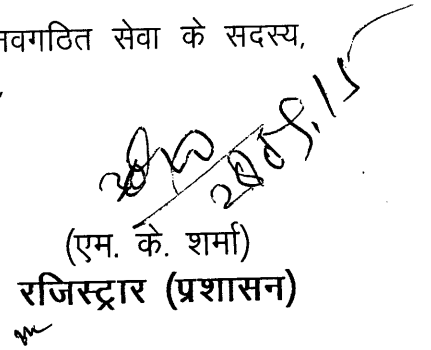 नवगठित सेवा के सदस्य,
(एम. के. शर्मा)
रजिस्ट्रार (प्रशासन)